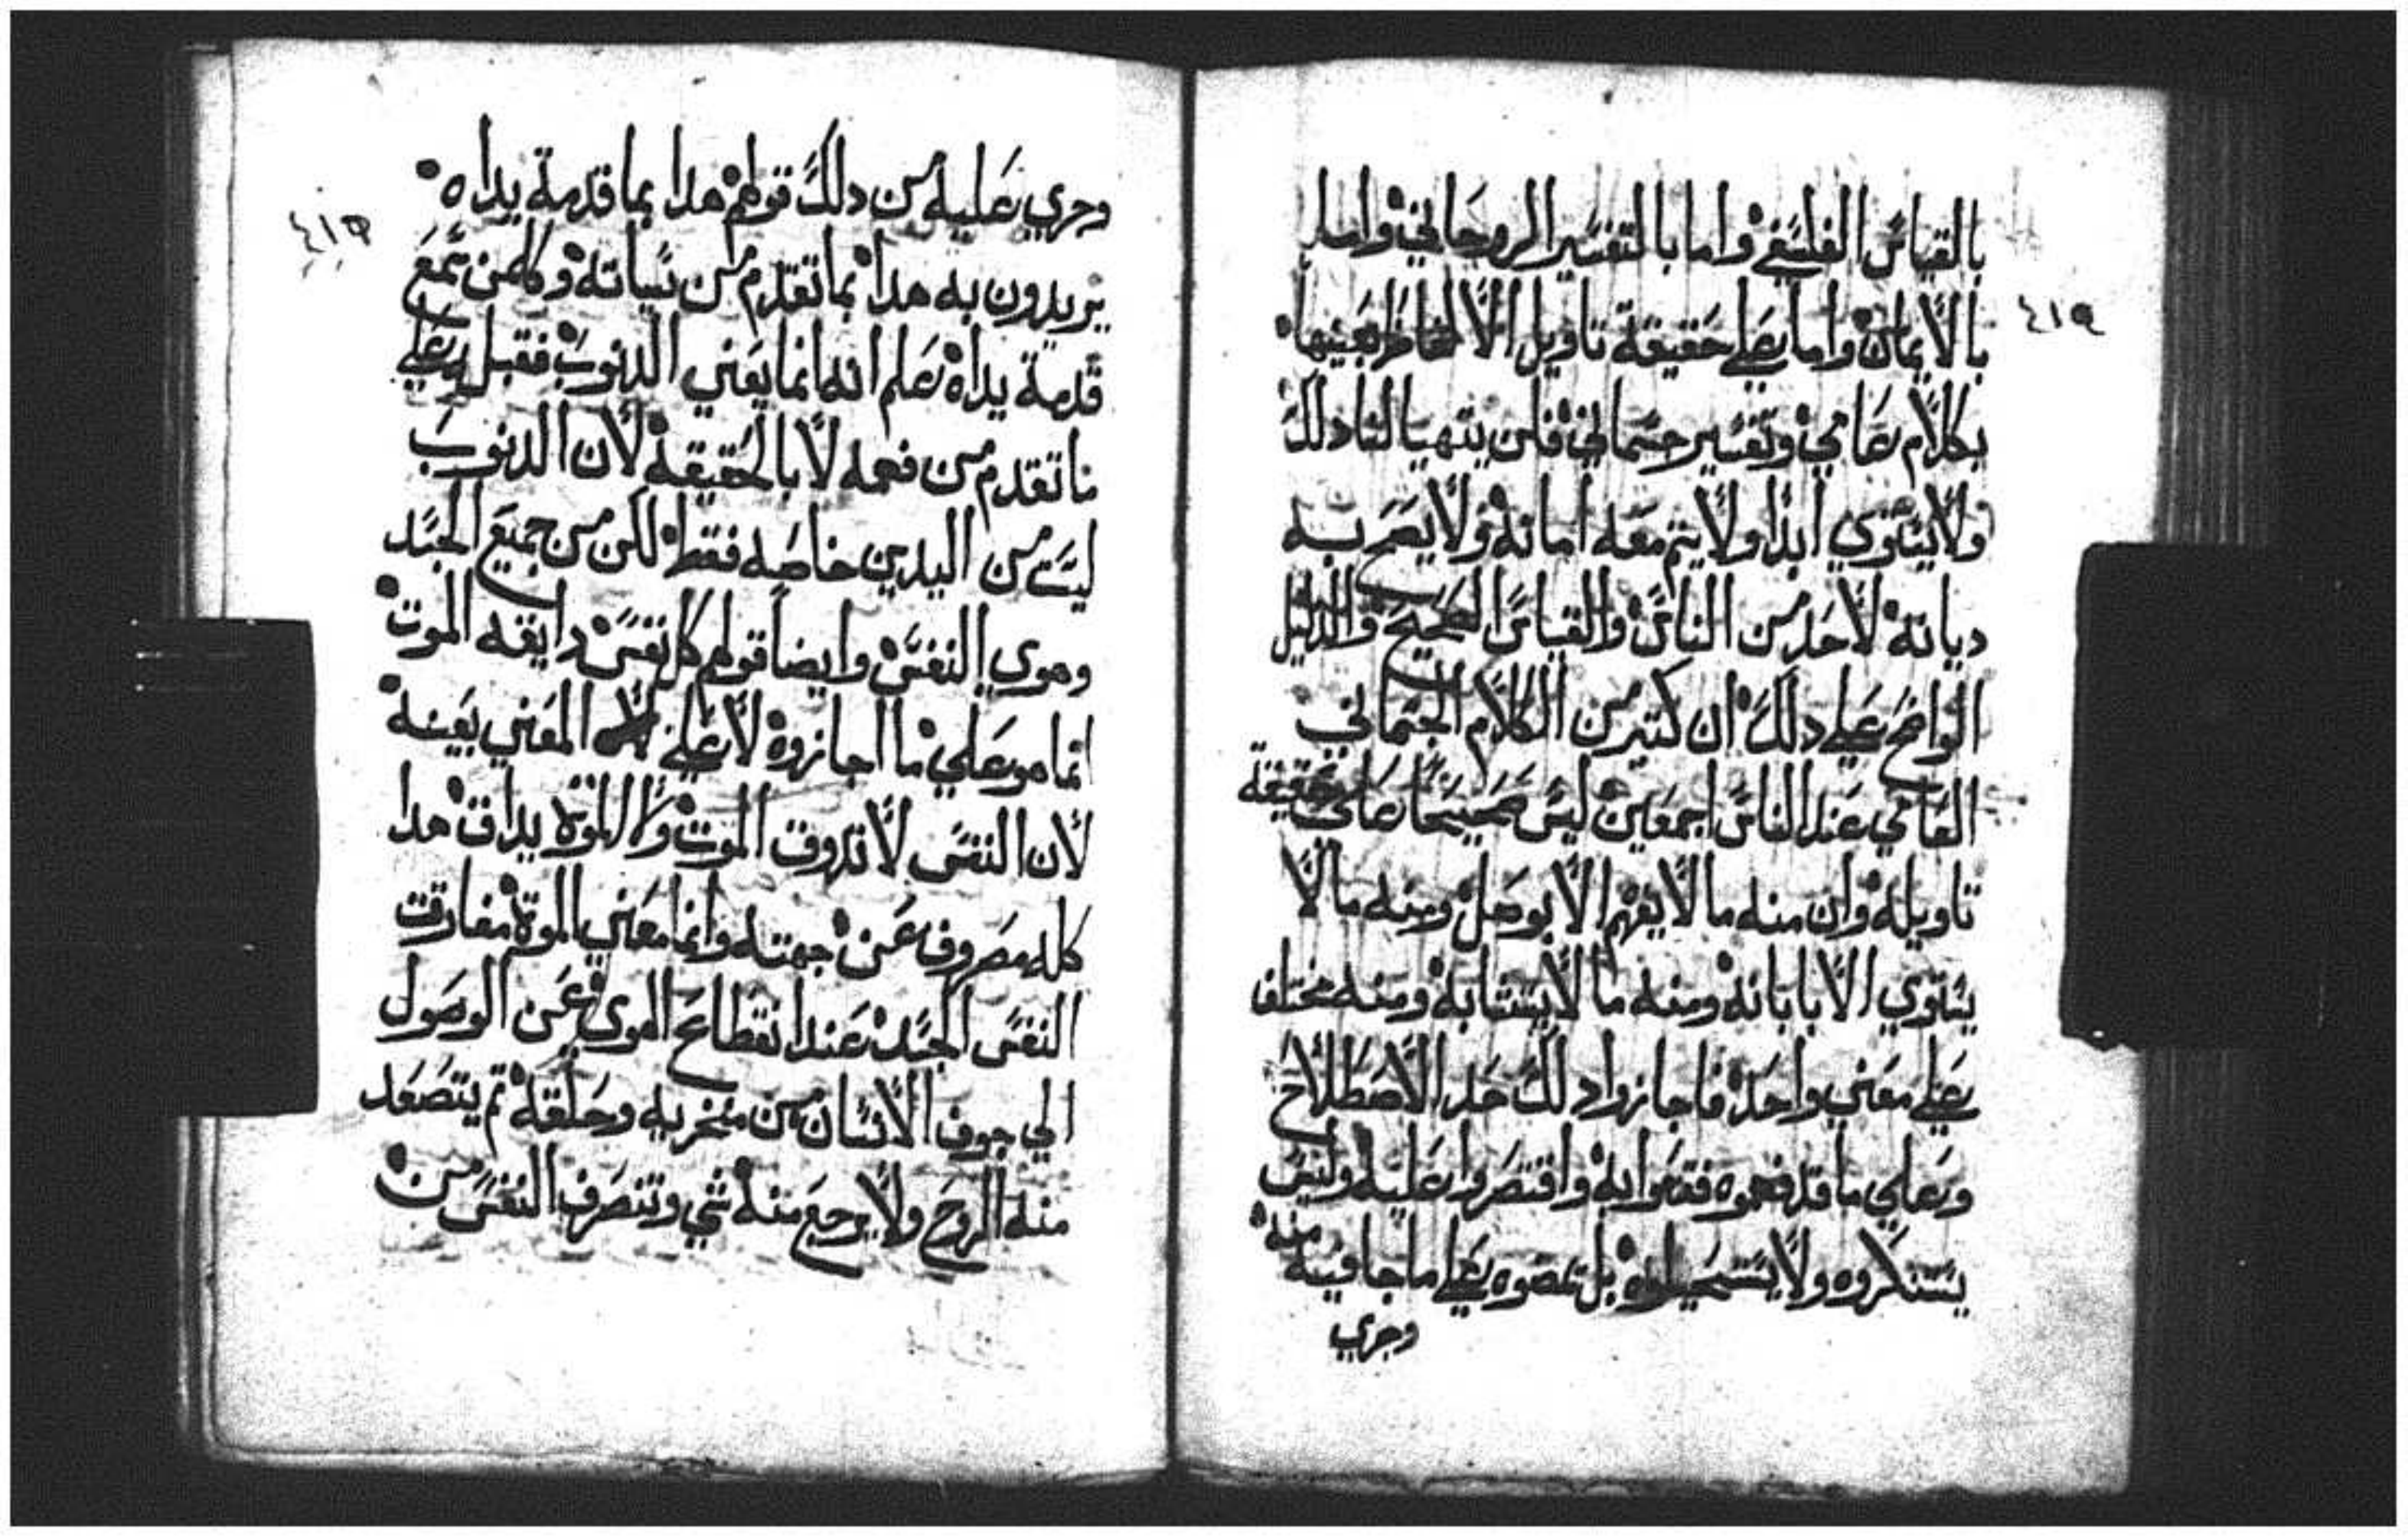 بالقياس الفلسفي واما بالتفسير الروحاني واما
بالايمان واما علي حقيقة تاويل الالفاظ بعينها
٤١٩
بكلام عامي وتفسير جسماني فلن يتهيا لنا دلك
ولا يستوي ابدا ولا يتم معه امانه ولا يصح به
ديانه لاحد من الناس والقياس الصحيح والدليل
الواضح علي دلك ان كتير من الكلام الجسماني
العامي عند الناس اجمعين ليس صحيحا علي حقيقة
تاويله وان منه ما لا يفهم الا بوصل ومنه ما لا
يستوي الا بابانه ومنه ما لا يتشابه ومنه مختلف
علي معني واحد فاجازوا دلك حد الاصطلاح
وعلي ما قد فهموه فقعوا به واقتصروا عليه وليس
يستنكروه ولا بل علي ما جا فيه منه
وجري
وجري عليه من دلك قولهم هدا بما قدمة يداه
٤١٩
يريدون به هدا بما تقدم من سياته وكلمن سمع
قدمة يداه علم انه انما يعني الدنوب فقبل علي
ما تقدم من فهمه لا بالحقيقه لان الدنوب
ليست من اليدين خاصه فقط لكن من جميع الجسد
وهوي النفس وايضا قولهم كل نفس دايقه الموت
انما هو علي ما اجازوه لا علي المعني بعينه
لان النفس لا تدوق الموت ولا الموت يداق هدا
كله مصروف عن جهته وانما معني الموة مفارقت
النفس الجسد عند انقطاع الهوي عن الوصول
الي جوف الانسان من منخريه وحلقه تم يتصعد
منه الروح ولا يرجع منه شي وتنصرف النفس من